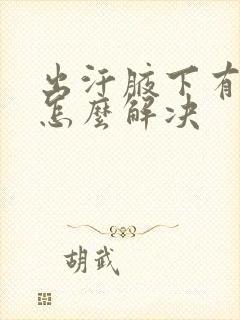 出汗腋下有
怎麼解决
胡武